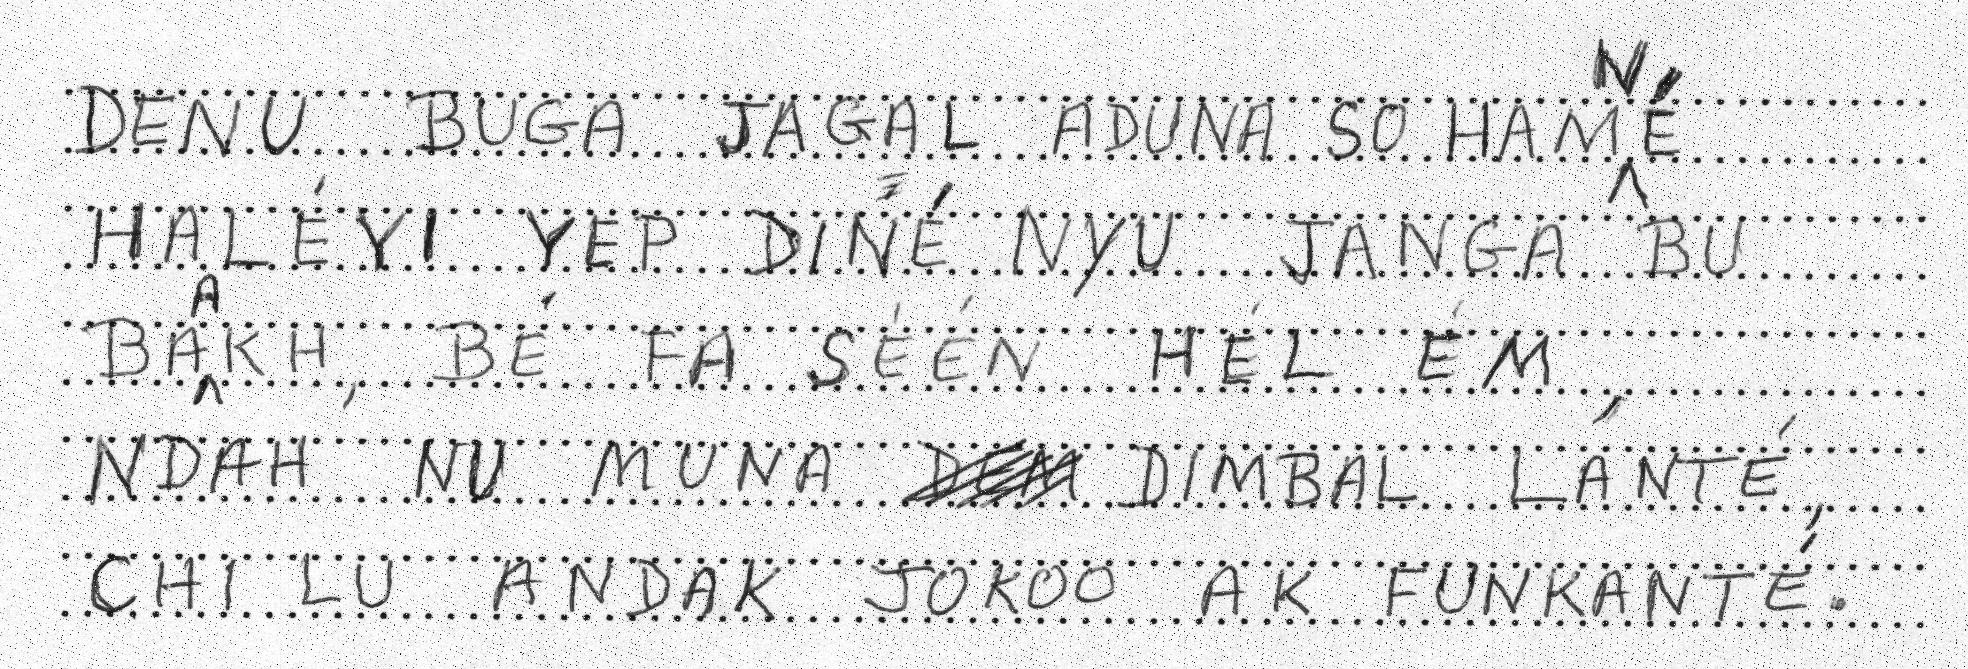 DENU BUGA JAGAL ADUNA SO HAMNÉ
HALÉYI YEP DINÉ NYU JANGA BU
BAAKH, BÉ FA SÉÉN HÉL ÉM
NDAH NU MUNA DIMBAL LÁNTÉ
CHI LU ANDAK JOKOO AK FUNKANTÉ.